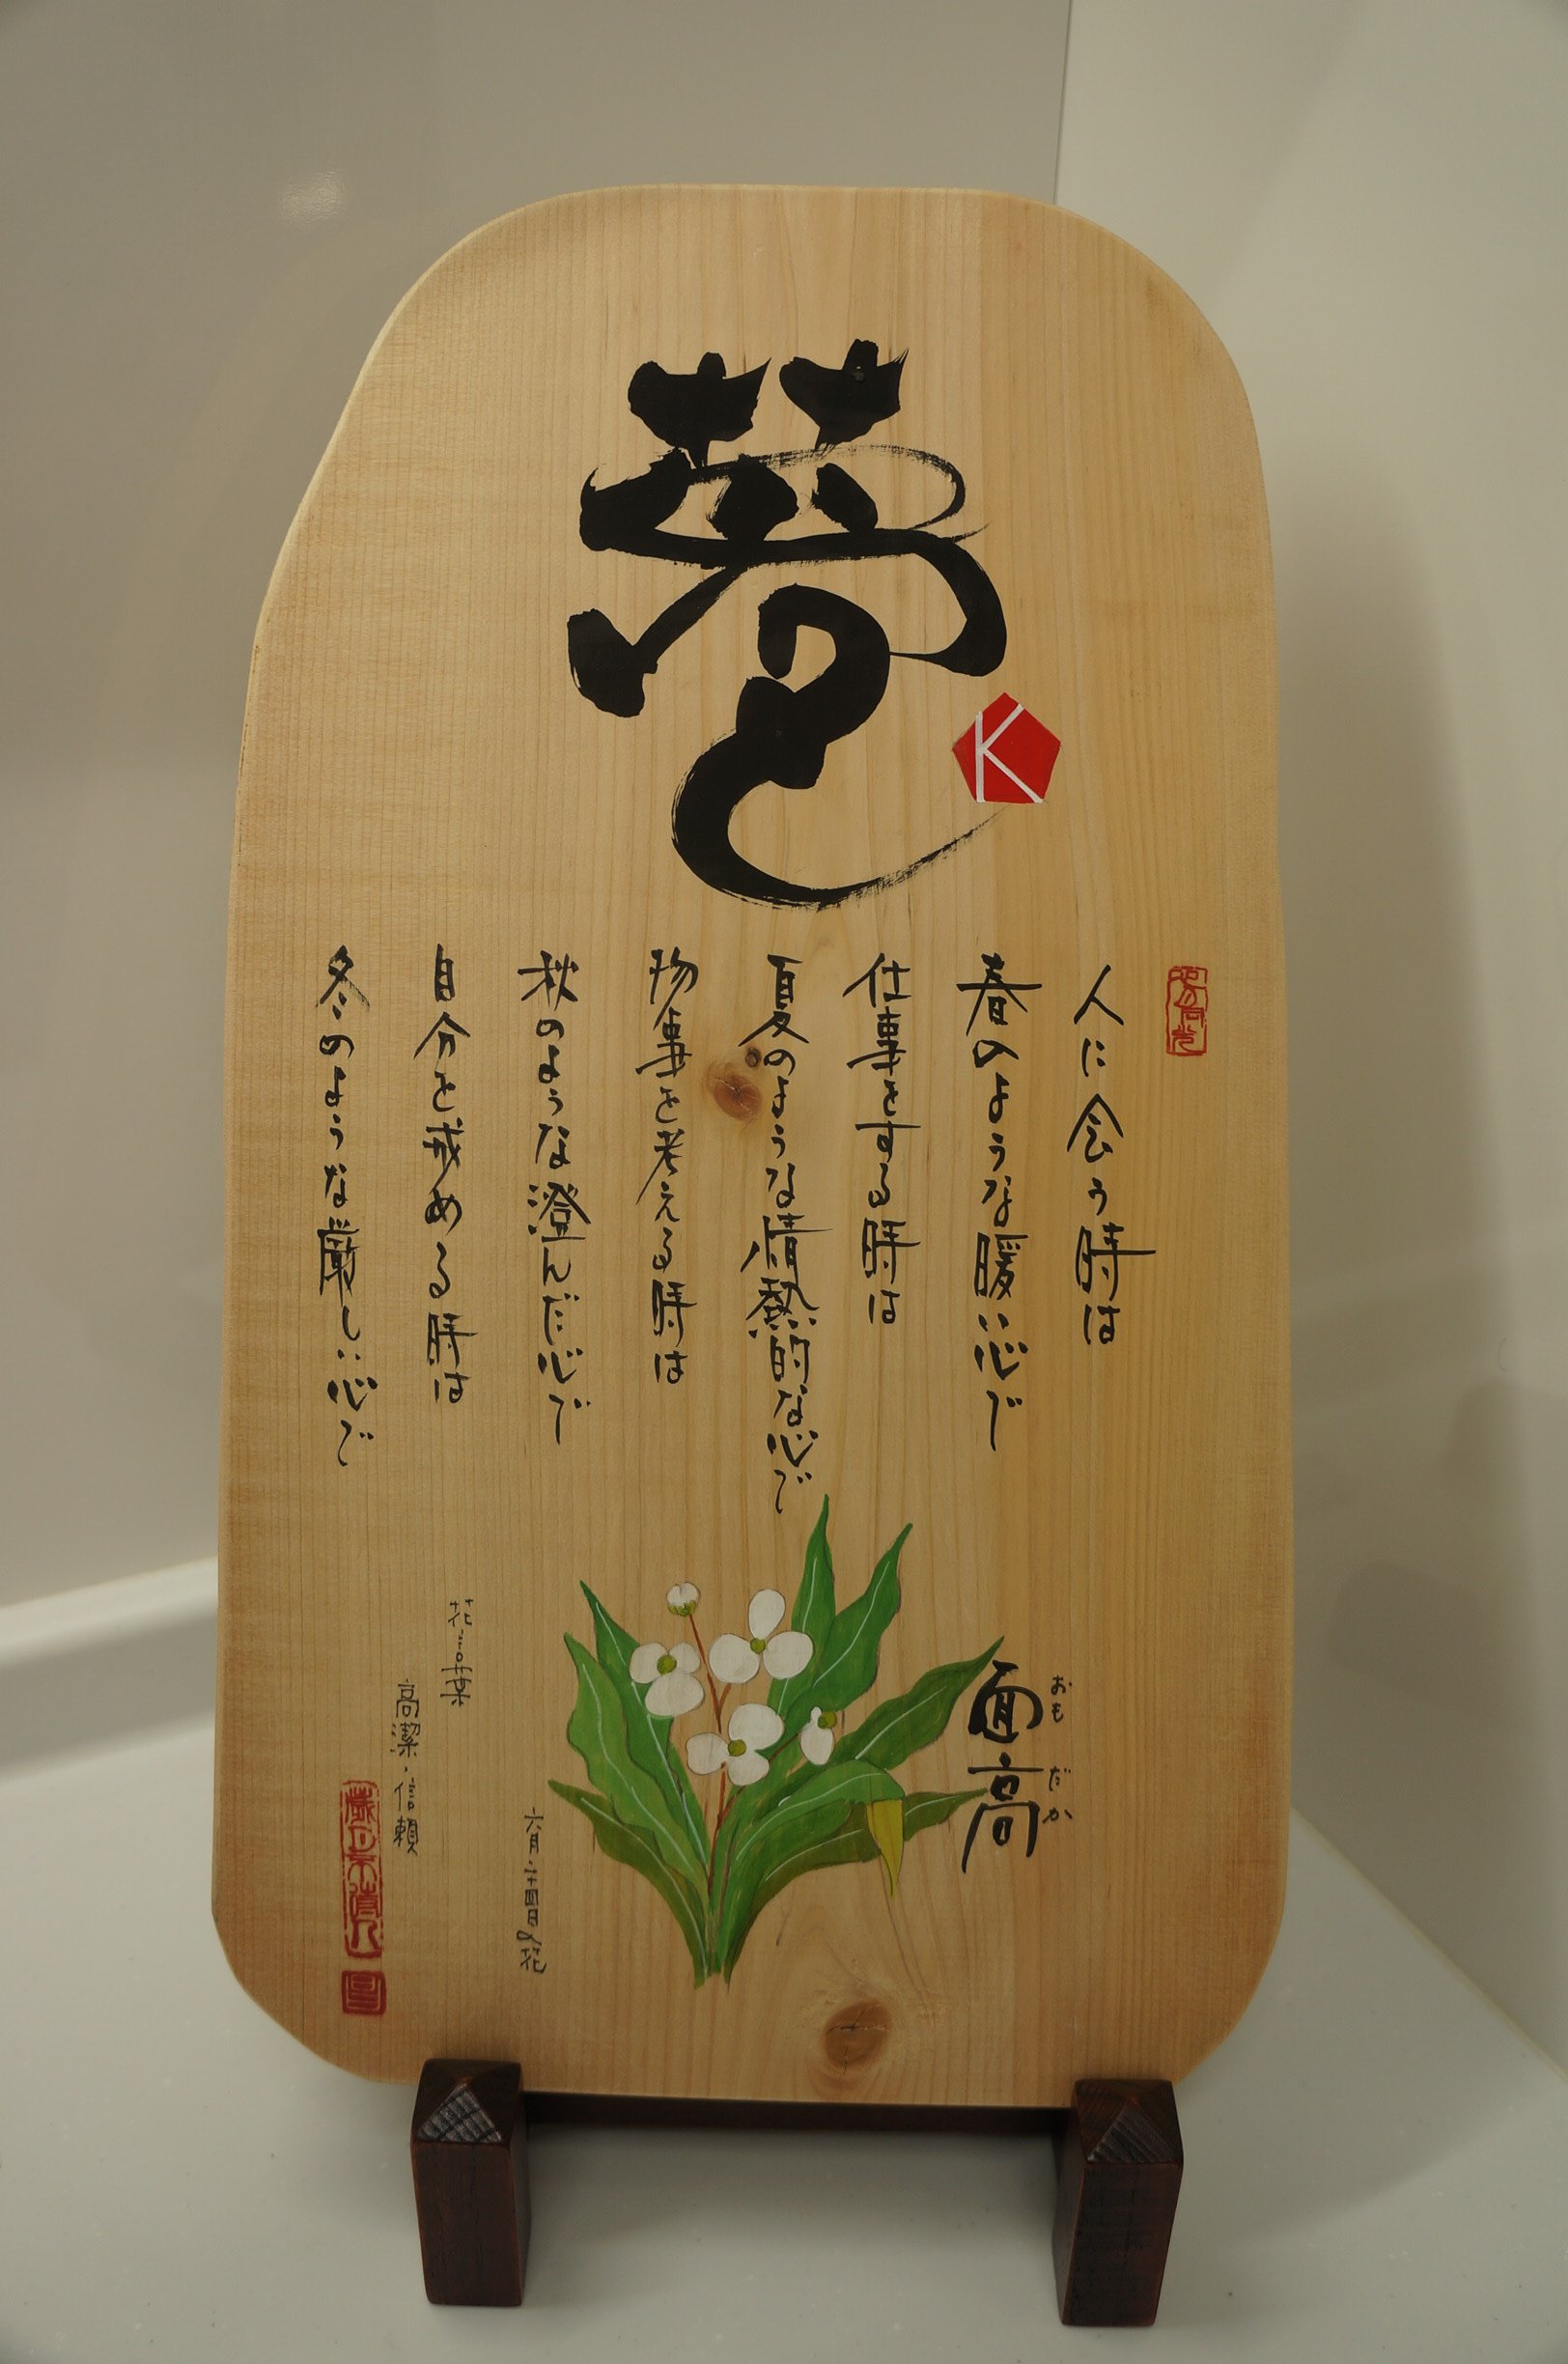 夢
K
人に会う時は
春のような暖い心で
仕事をする時は
夏のような情熱的な心で
物事を考える時は
秋のような澄んだ心で
自分を戒める時は
冬のような厳しい心で
おもだか
面高
六月二十四日の花
花言葉
高潔・信頼